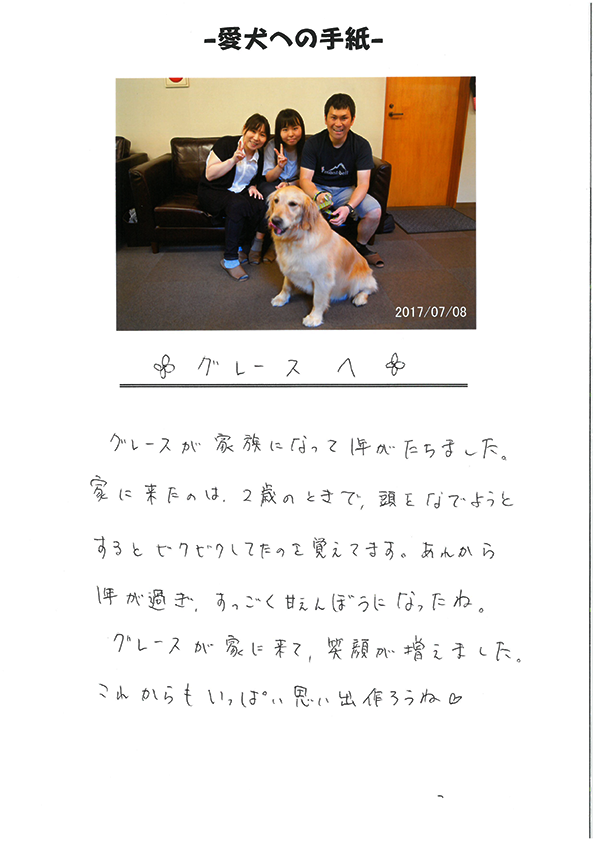 -愛犬への手紙-
2017/07/08
グレース へ
グレースが家族になって1年がたちました。
家に来たのは、2歳のときで、頭をなでようと
するとビクビクしてたのを覚えてます。あれから
1年が過ぎ、すっごく甘えんぼうになったね。
グレースが家に来て、笑顔が増えました。
これからもいっぱい思い出作ろうね♡